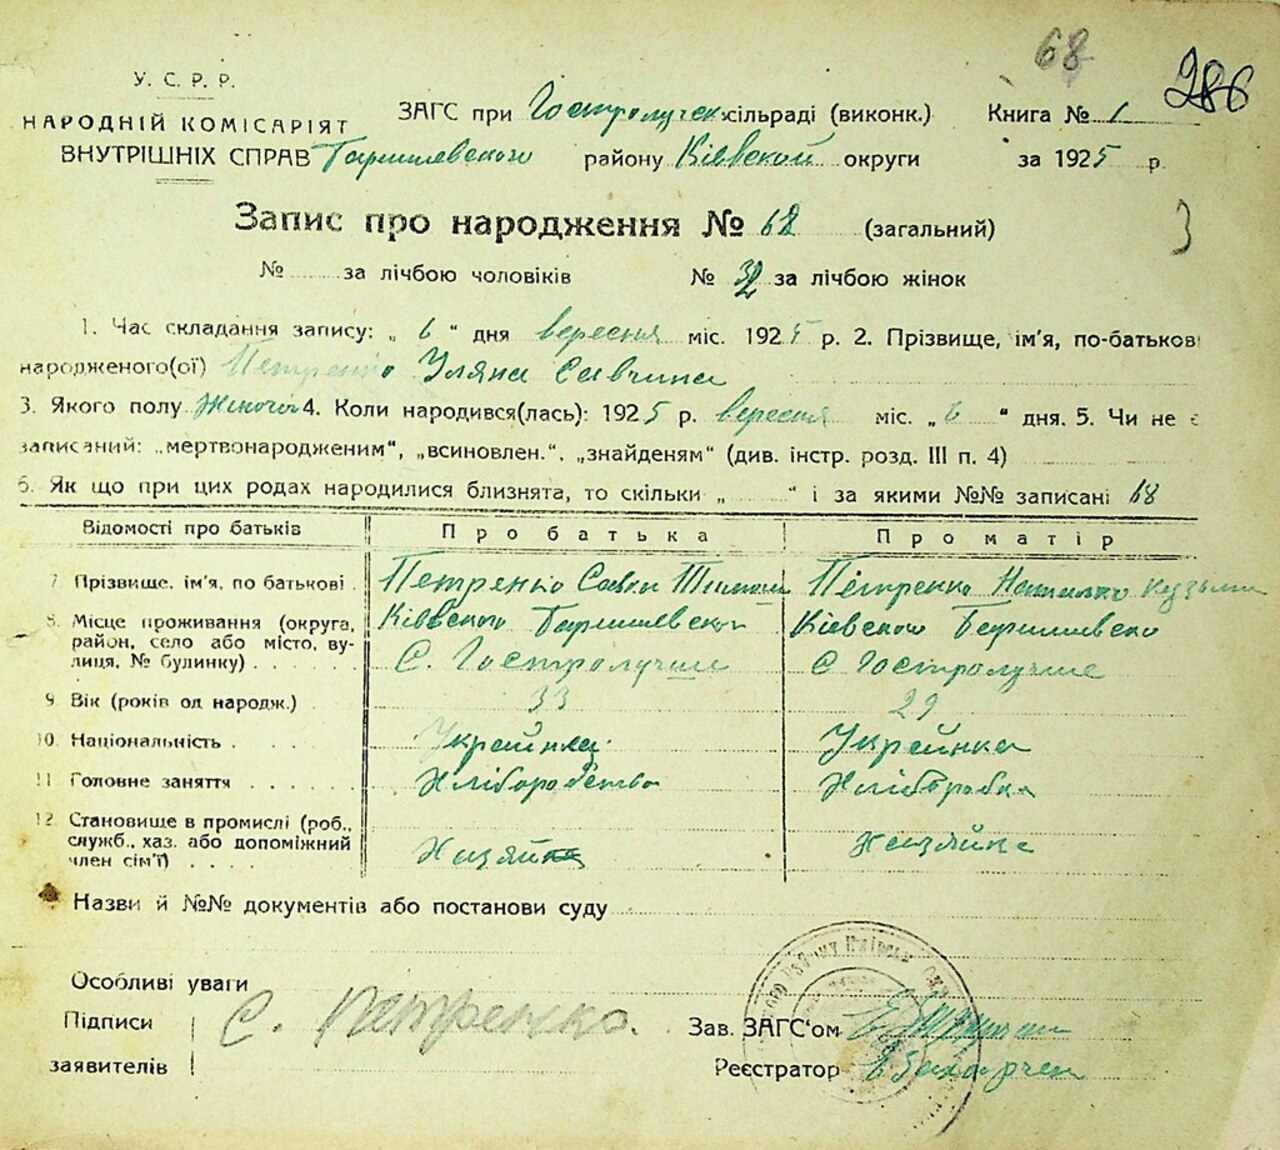 68
286
У. С. Р. Р.
НАРОДНІЙ КОМІСАРІЯТ
ВНУТРІШНІХ СПРАВ
ЗАГС при Гостролучск сільраді (виконк.) Книга № 1
Баришевского району Київской округи за 1925 р.
3
Запис про народження № 68 (загальний)
№ за лічбою чоловіків № 32 за лічбою жінок
1. Час складання запису: „ 6 “ дня вересня міс. 1925 р. 2. Прізвище, ім'я, по-батькові
народженого(ої) Петренко Уляна Савчина
3. Якого полу Жіночої 4. Коли народився(лась): 1925 р. вересня міс. „ 6 “ дня. 5. Чи не є
записаний: „мертвонародженим“, „всиновлен.“, „знайденям“ (див. інстр. розд. III п. 4)
6. Як що при цих родах народилися близнята, то скільки „ “ і за якими №№ записані 68
Відомості про батьків Про батька Про матір
7 Прізвище, ім'я, по батькові Петренко Савка Петренко Кузьми
8. Місце проживання (округа, Київского Баришевского Київского Баришевско
район, село або місто, ву-
лиця, № будинку) С. Гостролучче С Гостролучче
9 Вік (років од народж.) 33 29
10. Національність Українец Українка
11 Головне заняття Хліборобство Хліборобка
12. Становище в промислі (роб.,
служб., хаз. або допоміжний Хазяйка
член сім'ї)
Назви й №№ документів або постанови суду
Особливі уваги
Підписи
заявителів С. Петренко.
Зав. ЗАГС'ом
Реєстратор